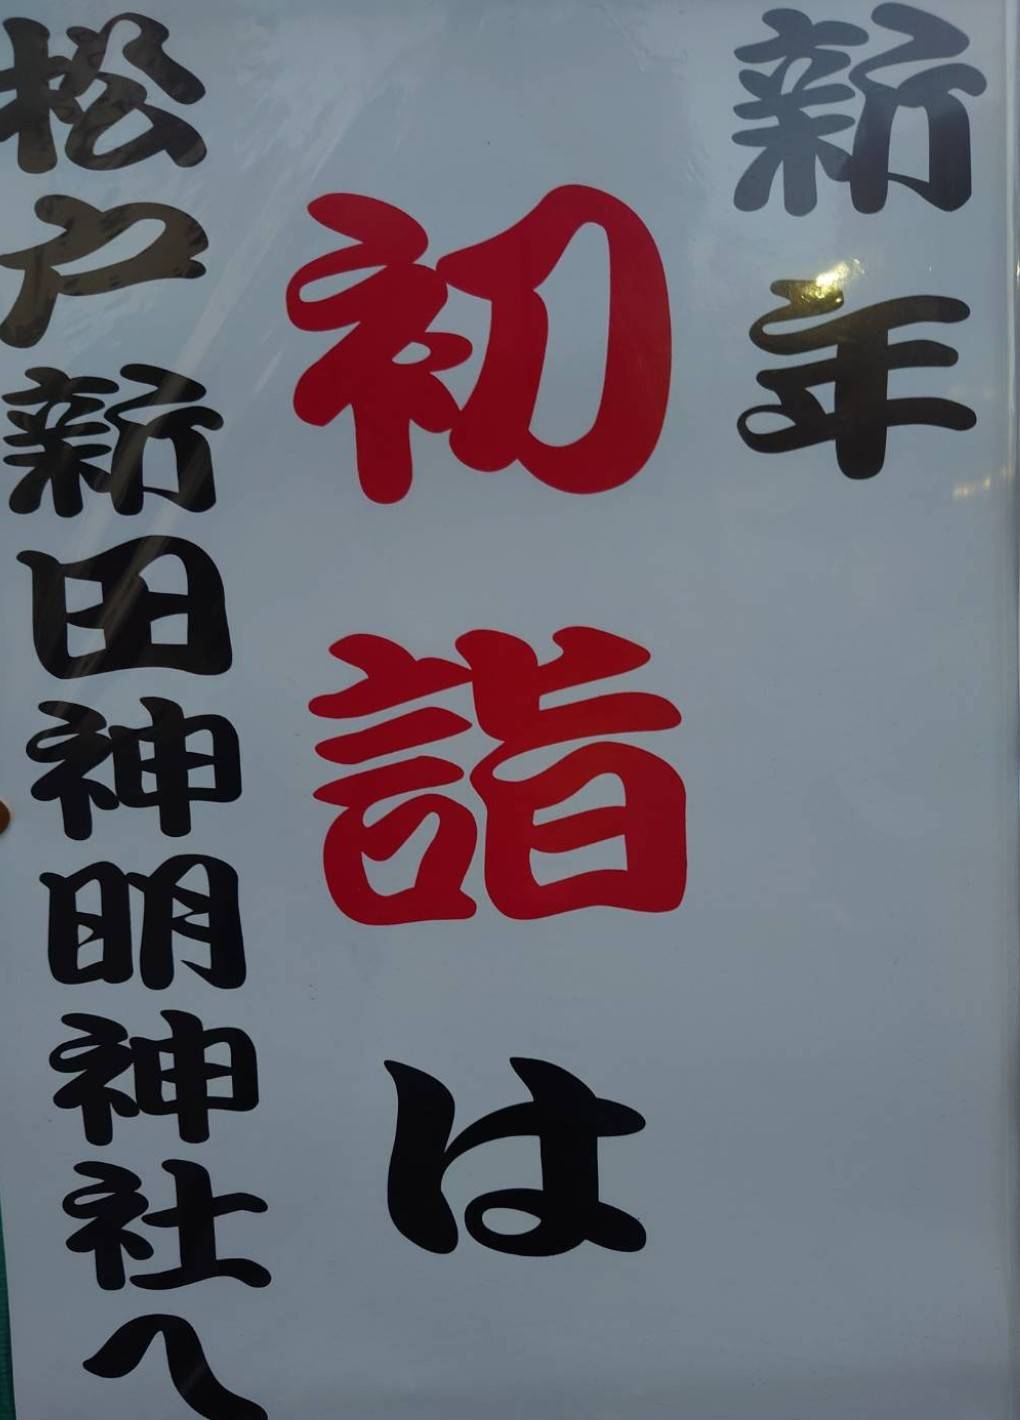 新年
初詣は
松戸新田神明神社へ